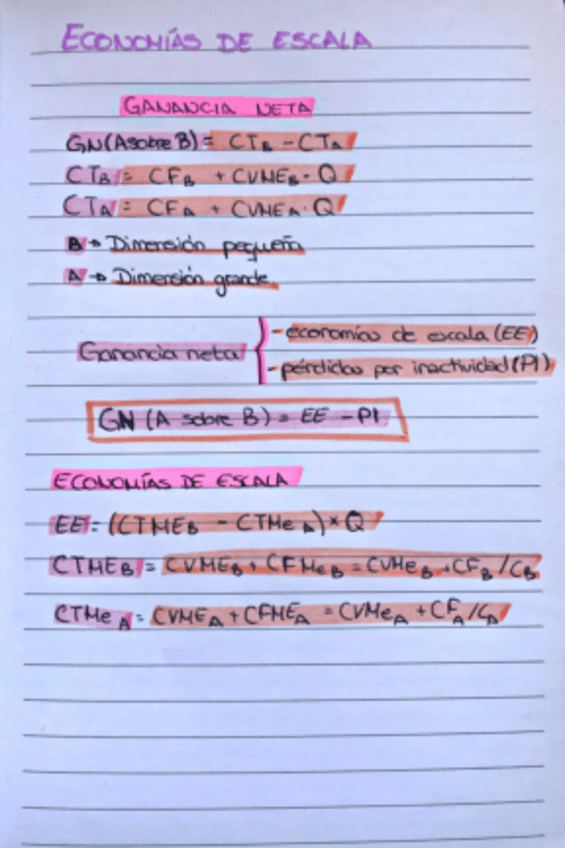 ECONOMÍAS DE ESCALA
GANANCIA NETA
GN(A sobre B) = CTB - CTA
CTB = CFB + CVMEB · Q
CTA = CFA + CVMEA · Q
B → Dimensión pequeña
A → Dimensión grande
Ganancia neta { - economías de escala (EE)
- pérdidas por inactividad (PI)
GN (A sobre B) = EE - PI
ECONOMÍAS DE ESCALA
EE = (CTMEB - CTMeA) × Q
CTMEB = CVMEB + CFMeB = CVMeB + CFB/CB
CTMeA = CVMEA + CFMEA = CVMeA + CFA/CA